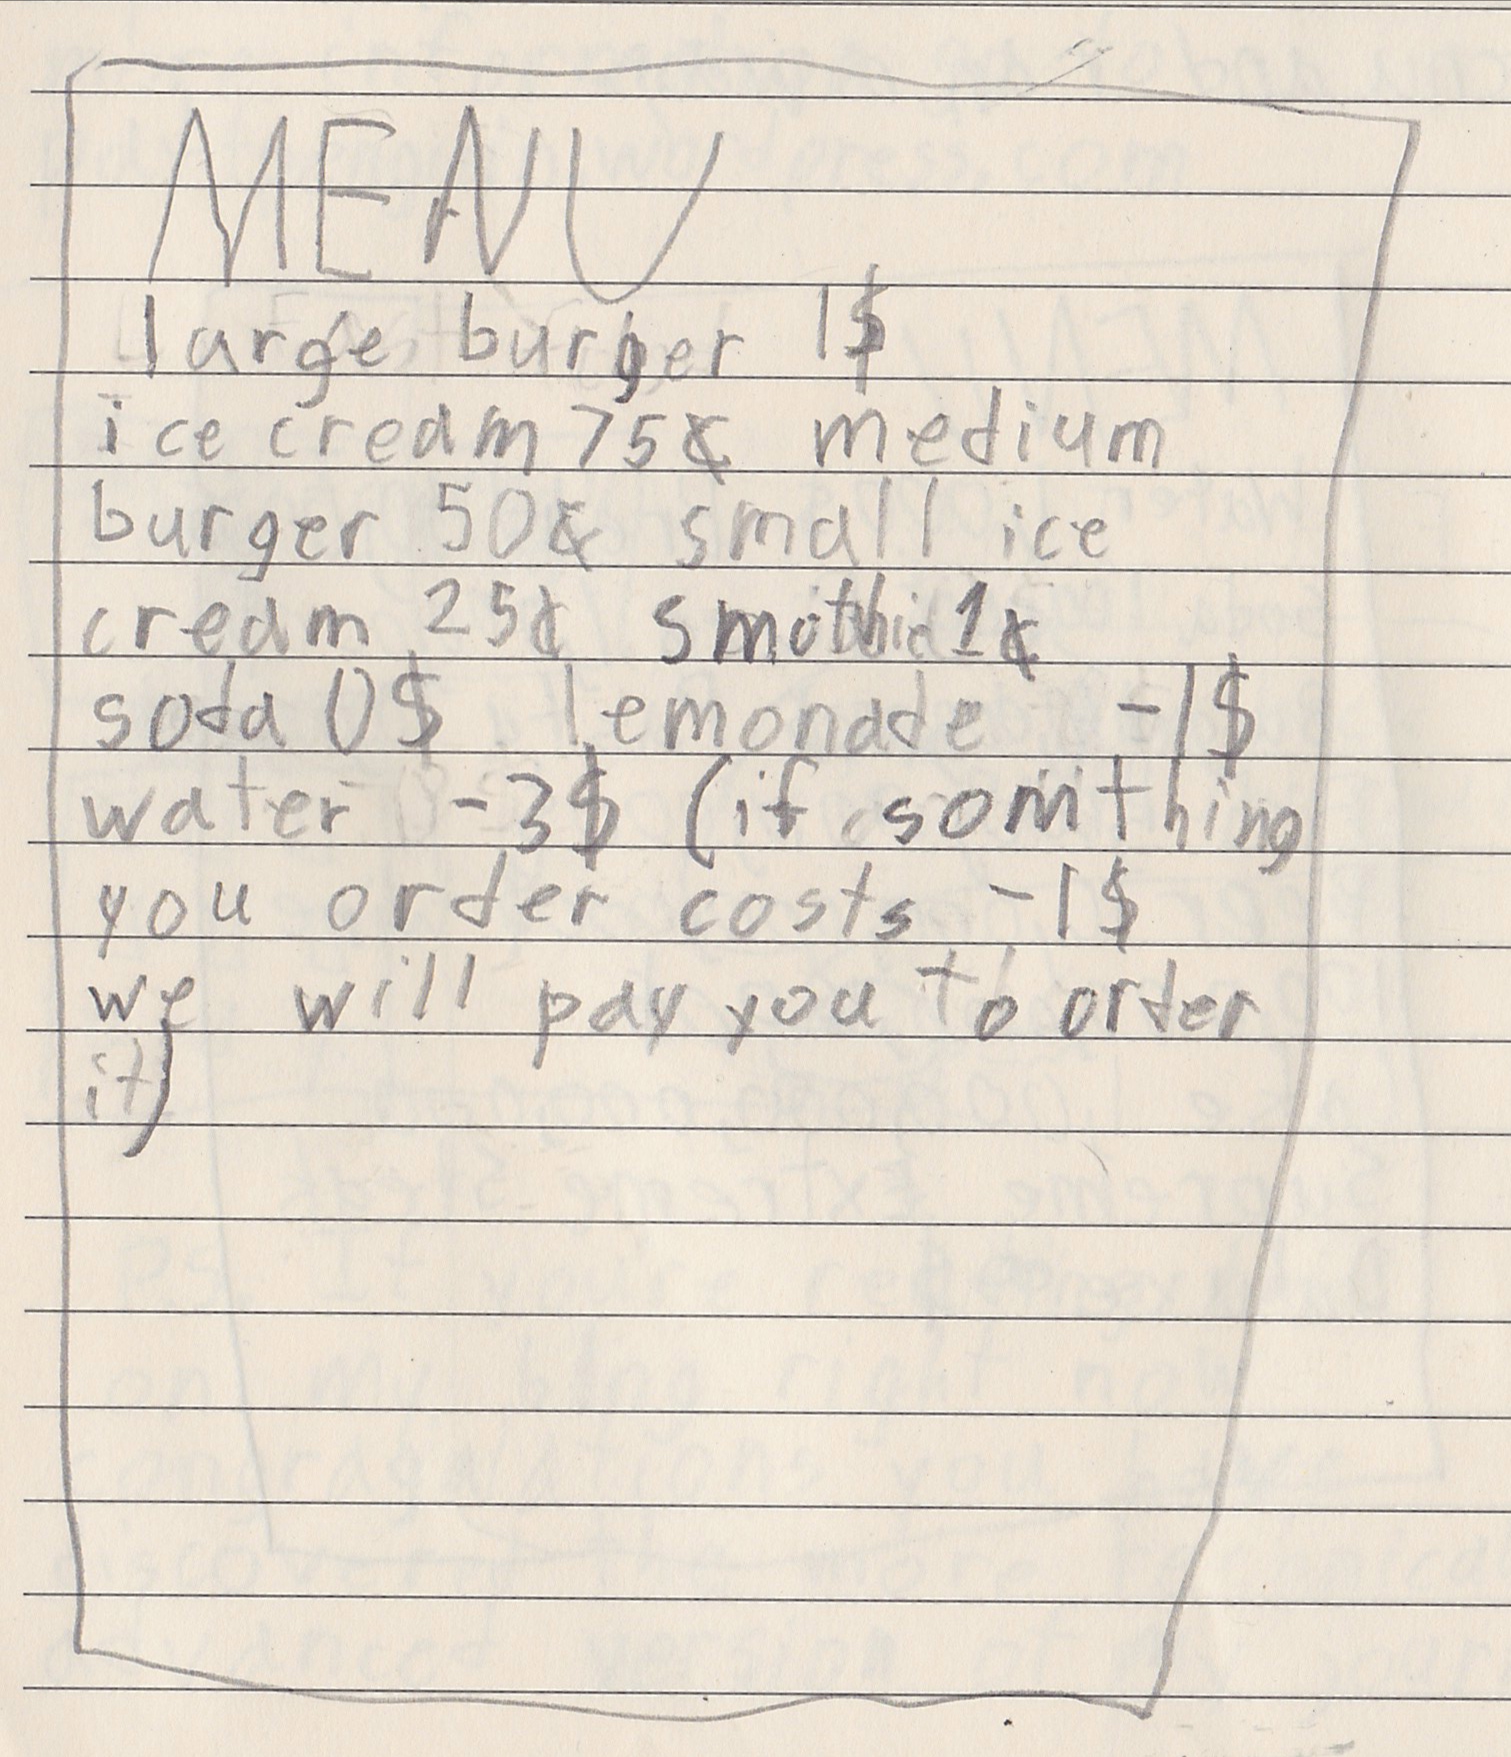 MENU
large burger 1$
ice cream 75¢ medium
burger 50¢ small ice
cream 25¢ smothie 1¢
soda 0$ lemonade -1$
water -3$ (if somthing
you order costs -1$
we will pay you to order
it)